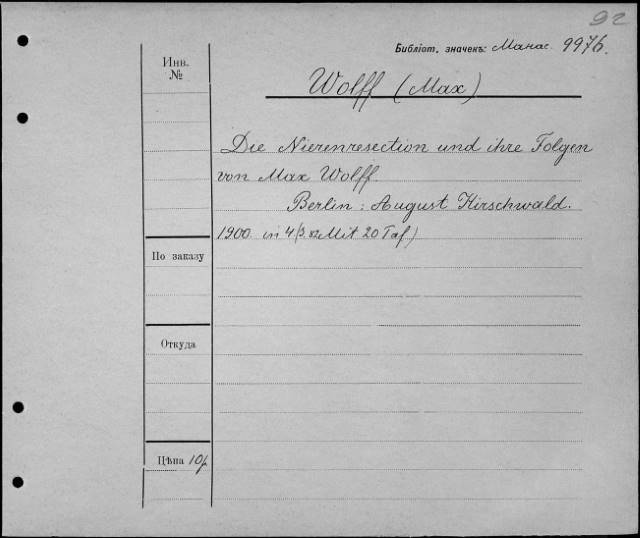 92
Библіот. значекъ: Манас. 9976.
Инв.
№
Wolff (Max)
Die Nierenresection und ihre Folgen
von Max Wolff
Berlin: August Hirschwald.
1900 in 4 Mit 20 Taf)
По заказу
Откуда
Цѣна 10р